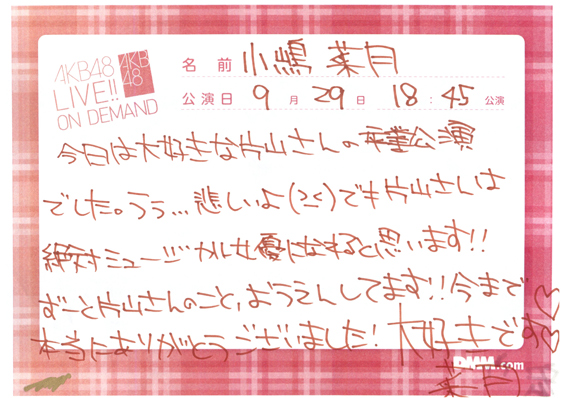 AKB48
LIVE!!
ON DEMAND
AKB
48
名前 小嶋 菜月
公演日 9月29日 18:45公演
今日は大好きな片山さんの卒業公演
でした。うぅ…悲しいよ(><)でも片山さんは
絶対ミュージカル女優になれると思います!!
ずーと片山さんのこと、おうえんしてます!!今まで
本当にありがとうございました!大好きです♡♡
DMM.com
菜月